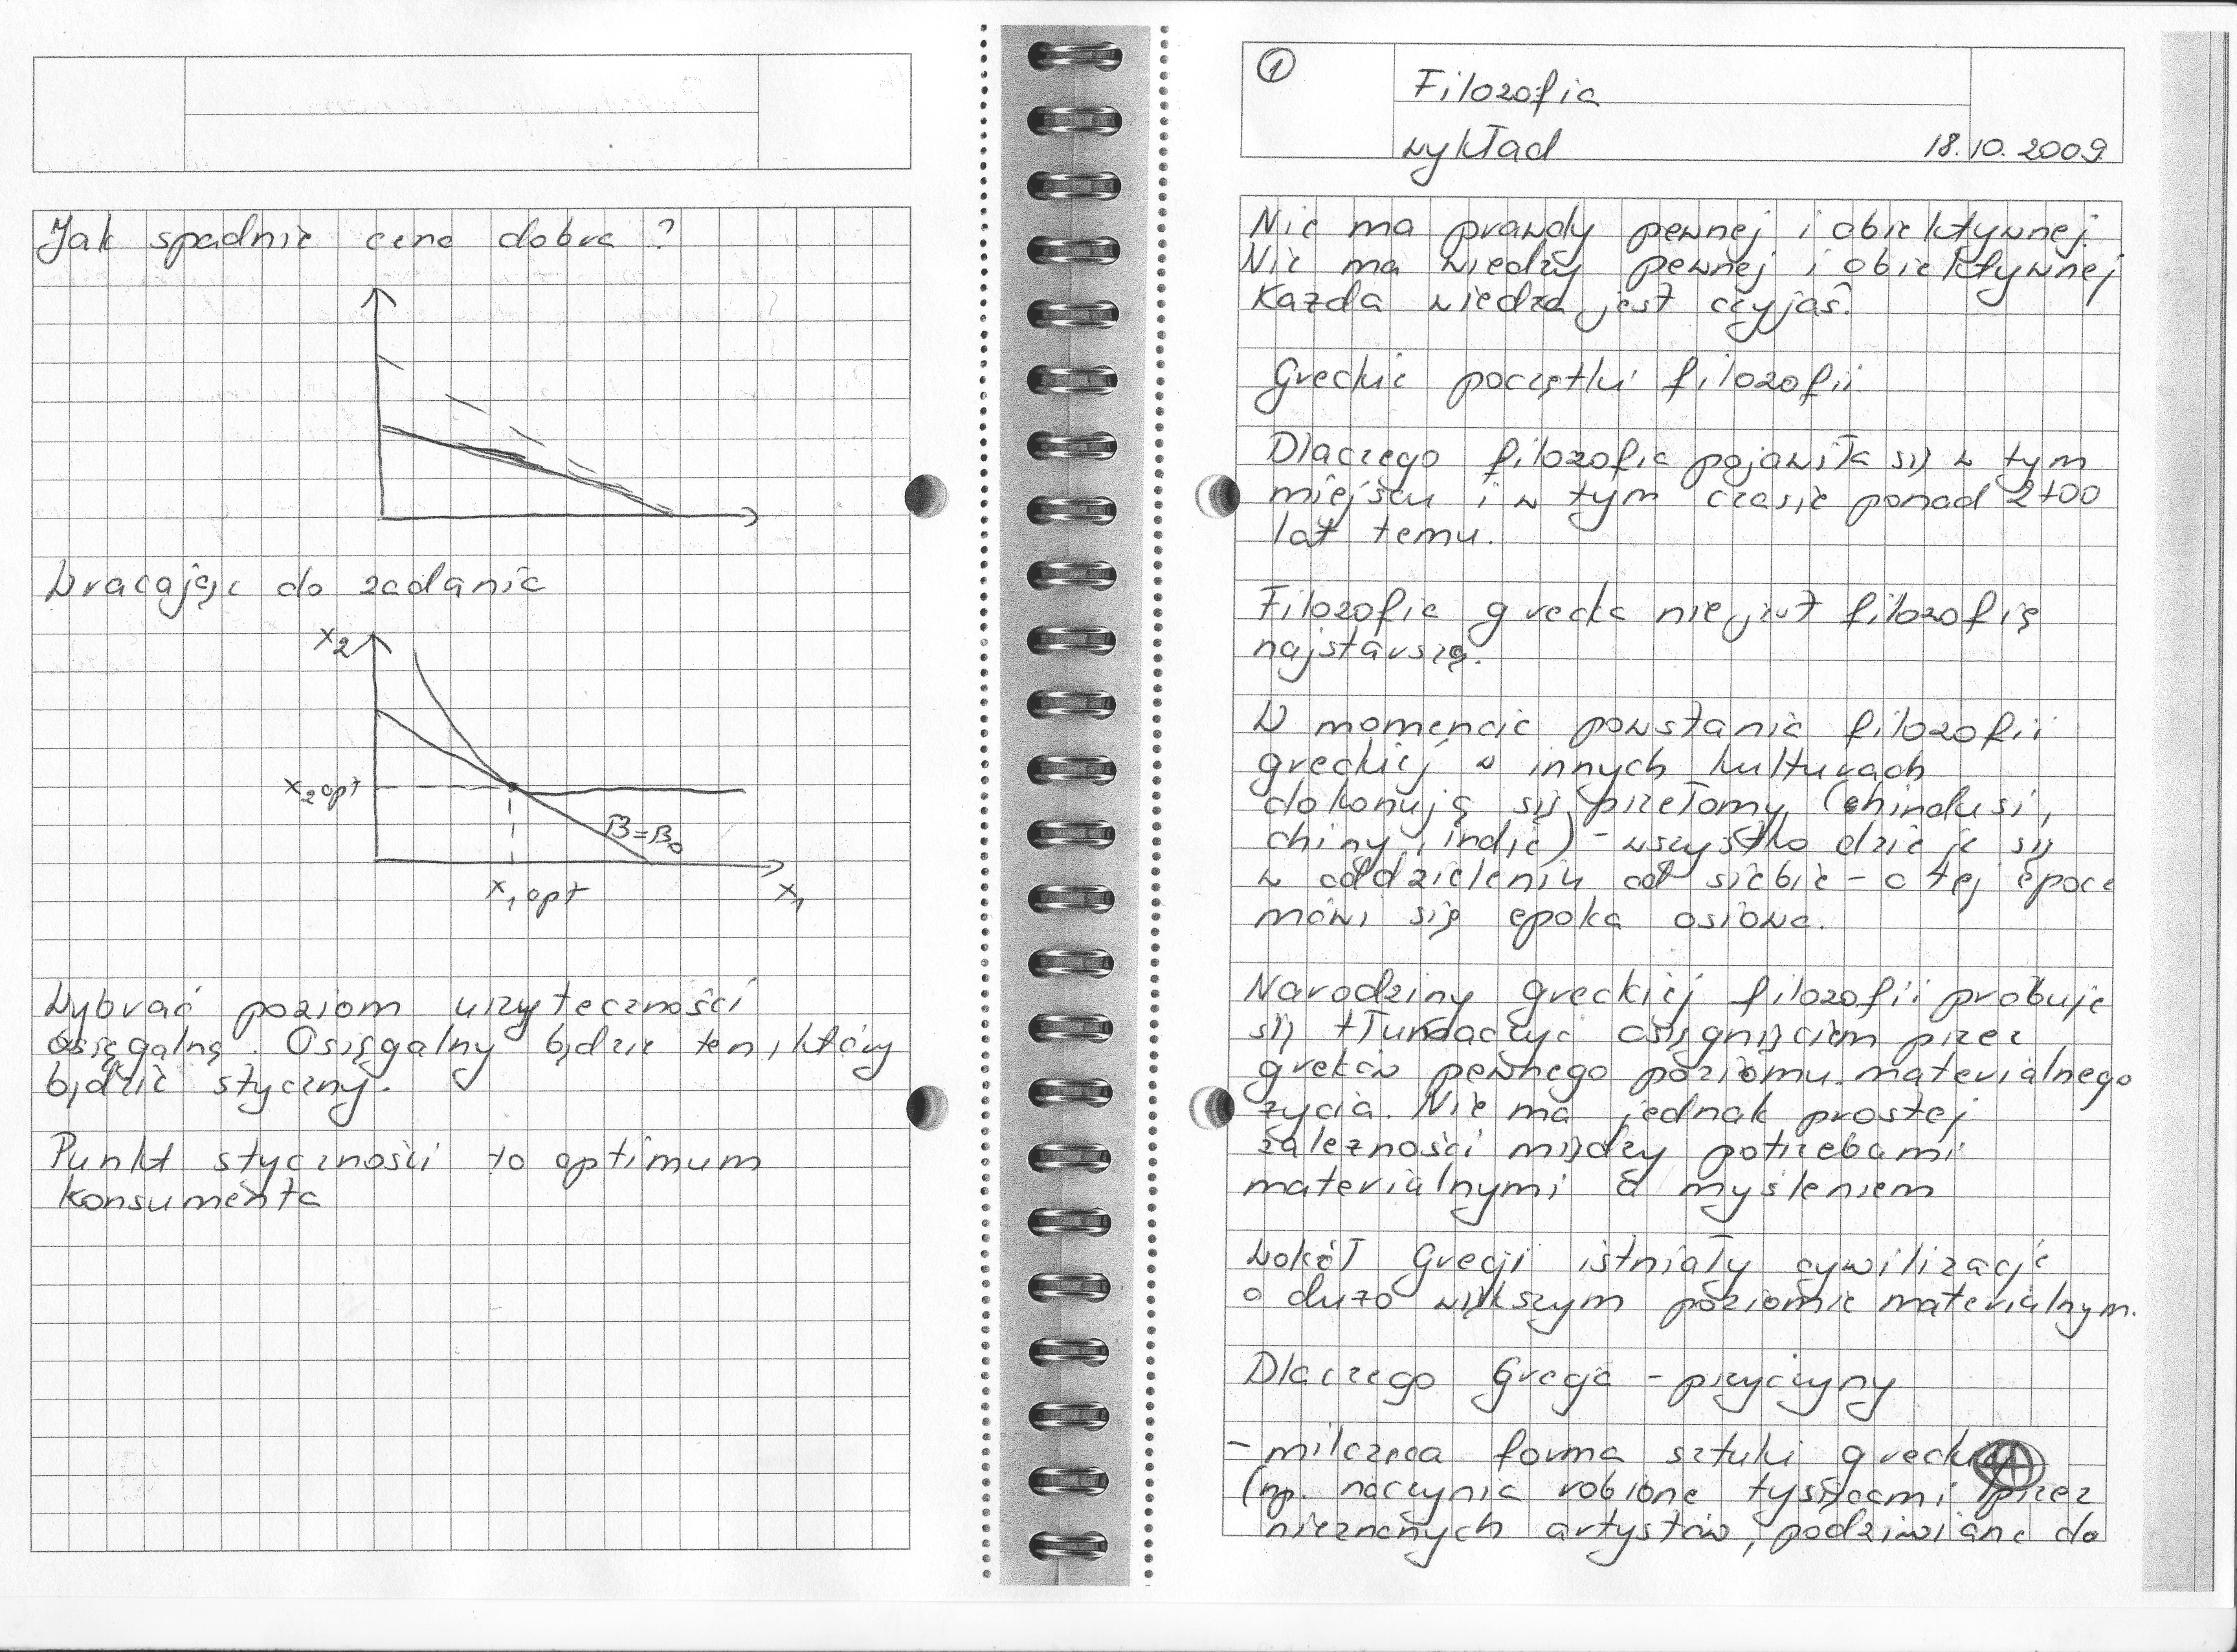 Jak spadnie cena dobra ?
Wracając do zadania
x2
x2 opt
B=B0
x1 opt
x1
Wybrać poziom użyteczności
osięgalną. Osięgalny będzie ten, który
będzie styczny.
Punkt styczności to optimum
konsumenta
1
Filozofia
wykład 18.10.2009
Nie ma prawdy pewnej i obiektywnej.
Nie ma wiedzy pewnej i obiektywnej
Każda wiedza jest czyjaś.
Greckie początki filozofii
Dlaczego filozofia pojawiła się w tym
miejscu i w tym czasie ponad 2400
lat temu.
Filozofia grecka nie jest filozofią
najstarszą.
W momencie powstania filozofii
greckiej w innych kulturach
dokonują się przełomy (hindusi,
chiny, indie) - wszystko dzieje się
w oddzieleniu od siebie - o tej epoce
mówi się epoka osiowa.
Narodziny greckiej filozofii próbuje
się tłumaczyć osięgnięciem przez
greków pewnego poziomu materialnego
życia. Nie ma jednak prostej
zależności między potrzebami
materialnymi a myśleniem
wokół Grecji istniały cywilizacje
o dużo większym poziomie materialnym.
Dlaczego Grecja - przyczyny
- milcząca forma sztuki
(np. naczynia robione tysiącami przez
nieznanych artystów, podziwiane do